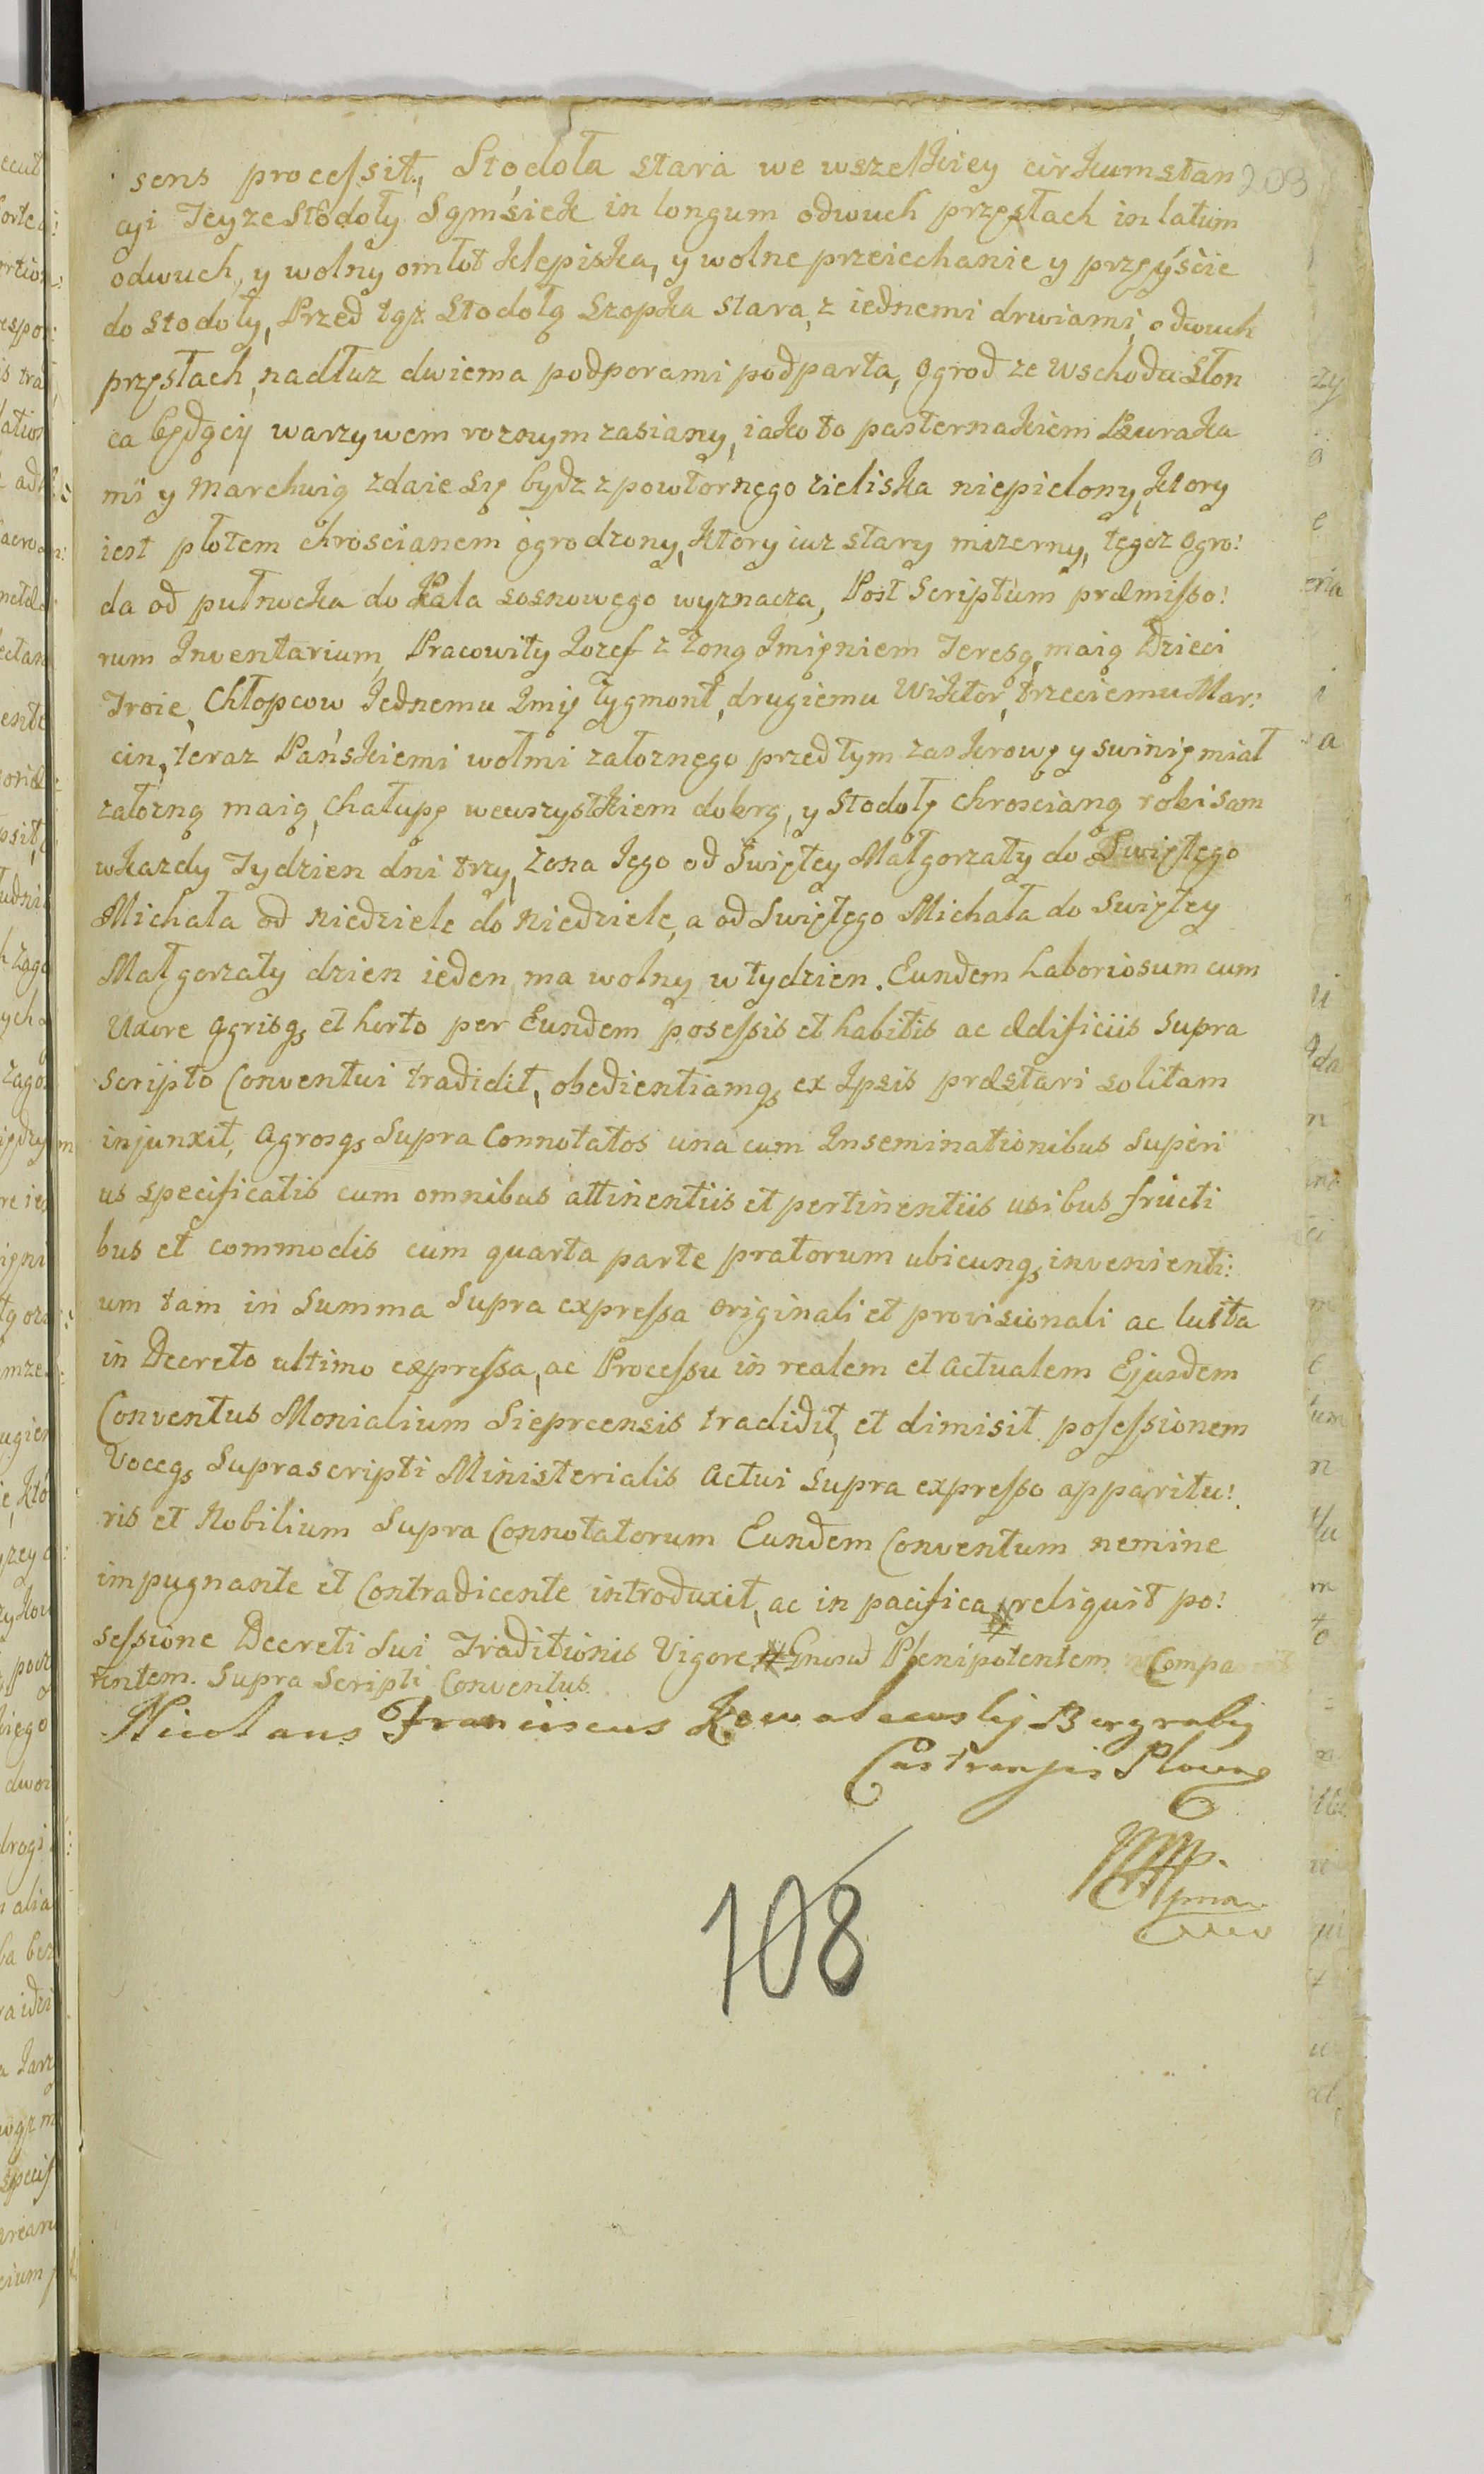 sens processit, Stodoła stara we wszelkiey cirkumstan 203
cyi Teyze Stodoły Sąmsiek in longum odwuch przęsłach in latum
odwuch, y wolny omłot klepiska, y wolne przeiechanie y przeyście
do stodoły, Przed tąz Stodołą Szopka stara, z iednemi drwiami, odwuch
przęsłach, nadłuz dwiema podporami podparta, Ogrod ze wschodu Słon
ca będący warzywem roznym zasiany, iako to pasternakiem Buraka
mi y Marchwią zdaie się bydz z powtornego zieliska niepielony, ktory
iest płotem chroscianem ogrodzony, ktory iuz stary mizerny, tegoz Ogro:
da od pułnocka do Pala sosnowego wyznacza, Post Scriptum præmisso:
rum Inventarium, Pracowity Jozef z Zoną Imięniem Teresą, maią Dzieci
Troie, Chłopcow Jednemu Imię Zygmont, drugiemu Wiktor, trzeciemu Mar:
cin, teraz Pańskiemi wołmi załoznego przed tym zas krowę y swinię miał
załozną maią, Chałupę wewszystkiem dobrą, y Stodołę chroscianą robi sam
wkazdy Tydzien dni trzy, Zona Jego od Swiętey Małgorzaty do Swiętego
Michała od niedziele do niedziele, a od Swiętego Michała do Swiętey
Małgorzaty dzien ieden ma wolny w tydzien. Eundem Laboriosum cum
Uxore Agrisqȝ et horto per Eundem posessis et habitis ac ædificiis supra
scripto Conventui tradidit, obedientiamqȝ ex Ipsis præstari solitam
injunxit, Agrosqȝ Supra Connotatos una cum Inseminationibus Superi
us specificatis cum omnibus attinentiis et pertinentiis usibus fructi
bus et commodis cum quarta parte pratorum ubicunqȝ invenienti:
um tam in Summa Supra expressa originali et provisionali ac luita
in Decreto ultimo expressa, ac Processu in realem et Actualem Ejusdem
Conventus Monialium Sieprcensis tradidit, et dimisit posessionem
Voceqȝ Suprascripti Ministerialis Actui Supra expresso apparitu:
ris et Nobilium Supra Connotatorum Eundem Conventum nemine
impugnante et Contradicente introduxit, ac in pacifica # reliquit po:
sessione Decreti Sui Traditionis Vigore # Plenipotentem Compa
rentem Supra Scripti Conventus.
Nicolaus Franciscus Kowalewskij Burgrabij
Castrensis Plocen
mpp.
108